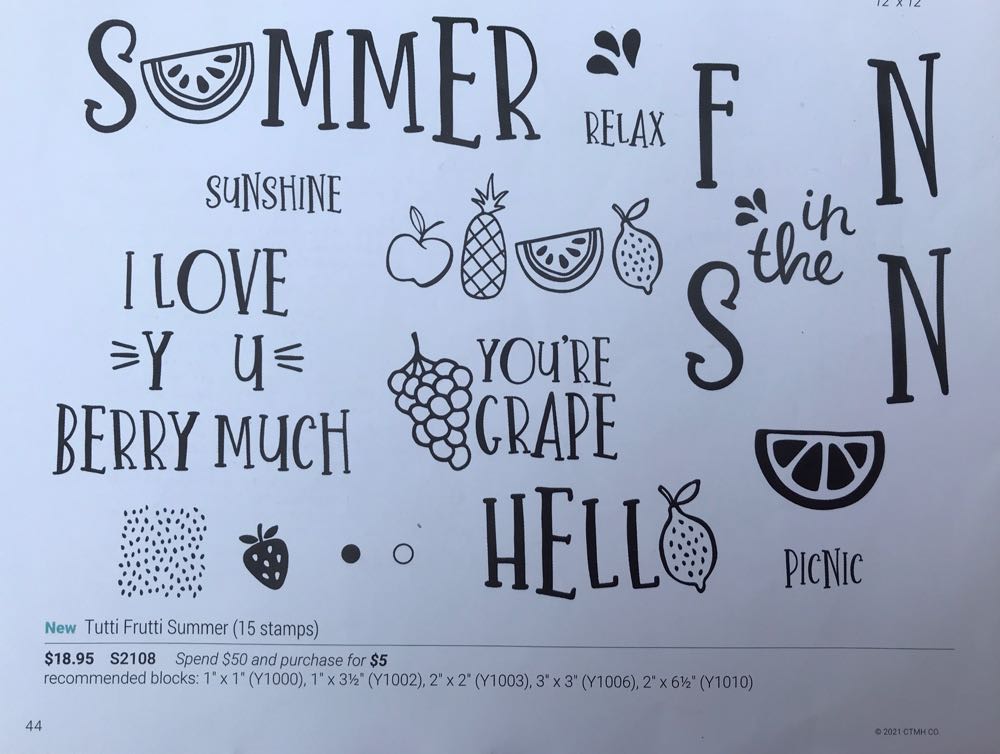 12" x 12"
S MMER
RELAX
F N
in
the
S N
SUNSHINE
I LOVE
Y U
BERRY MUCH
YOU'RE
GRAPE
HELL
PICNIC
New Tutti Frutti Summer (15 stamps)
$18.95 S2108 Spend $50 and purchase for $5
recommended blocks: 1" x 1" (Y1000), 1" x 3½" (Y1002), 2" x 2" (Y1003), 3" x 3" (Y1006), 2" x 6½" (Y1010)
44
© 2021 CTMH CO.